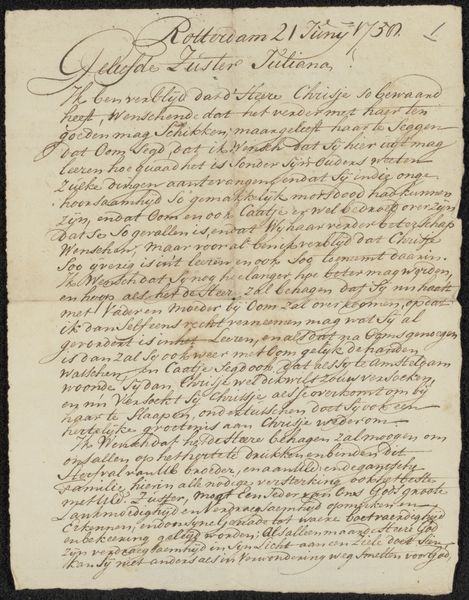 Rotterdam 21 Junij 1758. 1
Geliefde Zuster Juliana!
Ik ben verblijd dat d'Heere Chrisje so bewaard
heeft, Wenschende dat het verder met haar ten
goeden mag Schikken, maar gelieft haar te Seggen
dat Oom Segd, dat ik Wensch dat Sij hier uijt mag
leeren hoe quaad het is Sonder Sijn Ouders weten
Zulke dingen aantevangen, endat Sij indie onge
hoorsaamheid So gemakklijk mors dood had kunnen
zijn, endat Oom en ook Caatje er wel bedroeft over zijn
dat Se So gevallen is, endat Wij haar verder beterschap
Wenschen, maar vooral ben ik verblijd dat Chrisje
Soo ijverig is in't leeren en ook Soo toeneemt daarin.
Ik Wensch dat Sij nog hoe langer hoe beter mag worden,
en hoop als het de Heere zal behagen dat Sij nu haast
met Vader en Moeder bij Oom zal over komen, op dat
ik dan Selfs eens recht vernemen mag wat Sij al
gevordert is in het Leeren, en als dat na Ooms genoegen
is dan zal Sij ook weer met Oom gelijk de handen
Wasschen. En Caatje Segd ook, dat als Sij te Amsteldam
woonde Sij dan Chrisje wel dikwils zou versoeken,
en nu Versoekt Sij Chrisje als se overkomt om bij
haar te Slaapen, ondertusschen doet Sij ook een
hertelijke groetenis aan Chrisje wederom.
Ik Wensch dat het de Heere behagen zal mogen om
ons allen op het herte te drukken en binden dit
Sterfval van UE broeder, en aan UE en de gantsche
Familie hier in alle nodige versterking ook het beste
met UE. Zuster, mogt een Ieder van Ons Gods groote
Lankmoedigheid en Verdraagsaamheid opmerken en
Erkennen, en door Syne genade tot waere boetvaerdigheid
en bekering geleijd worden; als alleen maar d'Heere God
zijn verdraagsaamheid en Syn Licht aan een Ziele doet Sien
kan Sij niet anders als in Verwondering weg Smelten voor God,